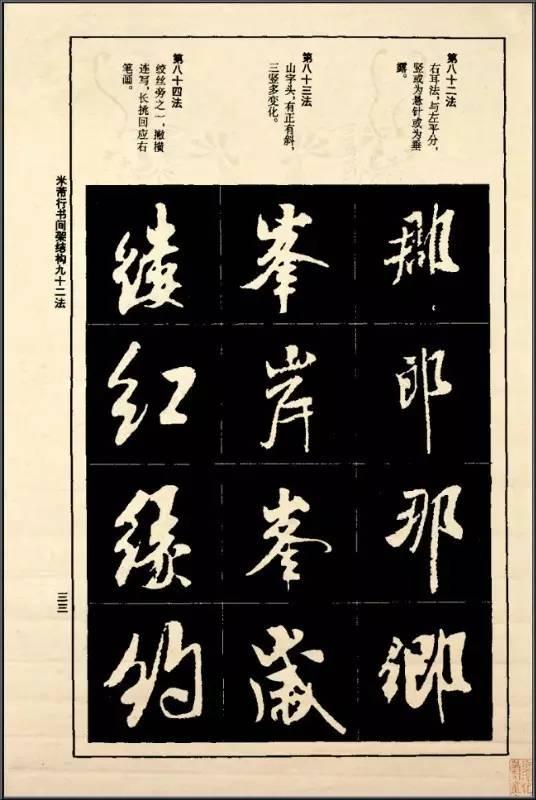 第八十二法
右耳法，与左平分，
竖或为悬针或为垂
露。
郡
郎
那
卿
第八十三法
山字头，有正有斜，
三竖多变化。
峯
岸
峯
岁
第八十四法
绞丝旁之一，撇横
连写，长挑回应右
笔画。
红
缘
约
米芾行书间架结构九十二法
三三